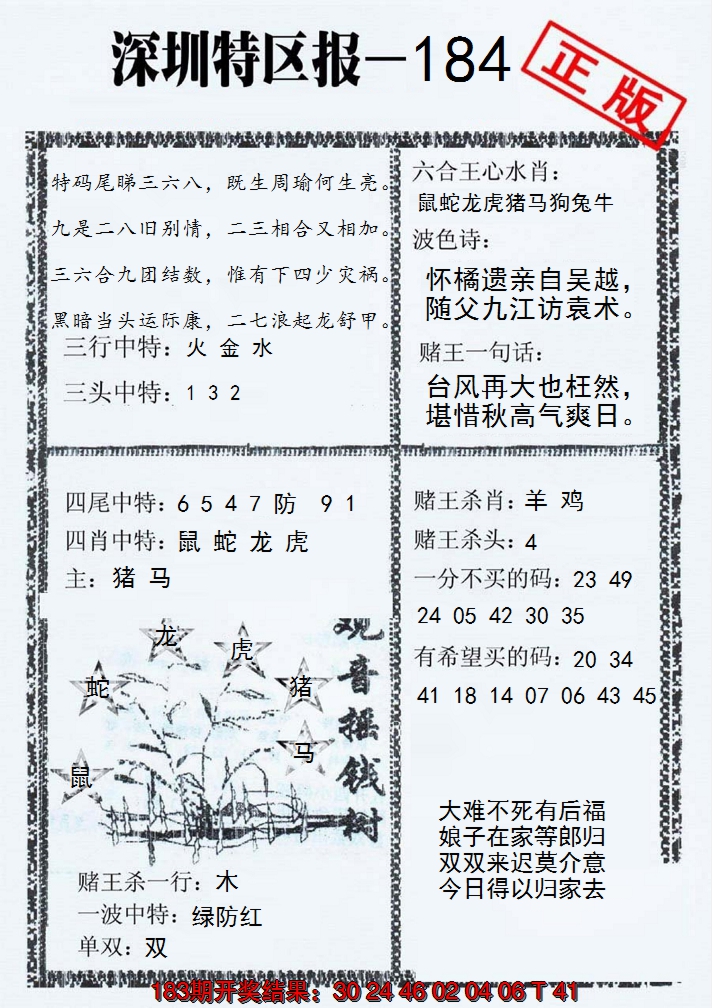 深圳特区报-184
正版
特码尾睇三六八，既生周瑜何生亮。
九是二八旧别情，二三相合又相加。
三六合九团结数，惟有下四少灾祸。
黑暗当头运际康，二七浪起龙舒甲。
三行中特：火 金 水
三头中特：1 3 2
六合王心水肖：
鼠蛇龙虎猪马狗兔牛
波色诗：
怀橘遗亲自吴越，
随父九江访袁术。
赌王一句话：
台风再大也枉然，
堪惜秋高气爽日。
四尾中特：6 5 4 7 防 9 1
四肖中特：鼠 蛇 龙 虎
主：猪 马
龙
虎
蛇
猪
马
鼠
观音摇钱树
赌王杀一行：木
一波中特：绿防红
单双：双
赌王杀肖：羊 鸡
赌王杀头：4
一分不买的码：23 49
24 05 42 30 35
有希望买的码：20 34
41 18 14 07 06 43 45
大难不死有后福
娘子在家等郎归
双双来迟莫介意
今日得以归家去
183期开奖结果：30 24 46 02 04 06 T 41